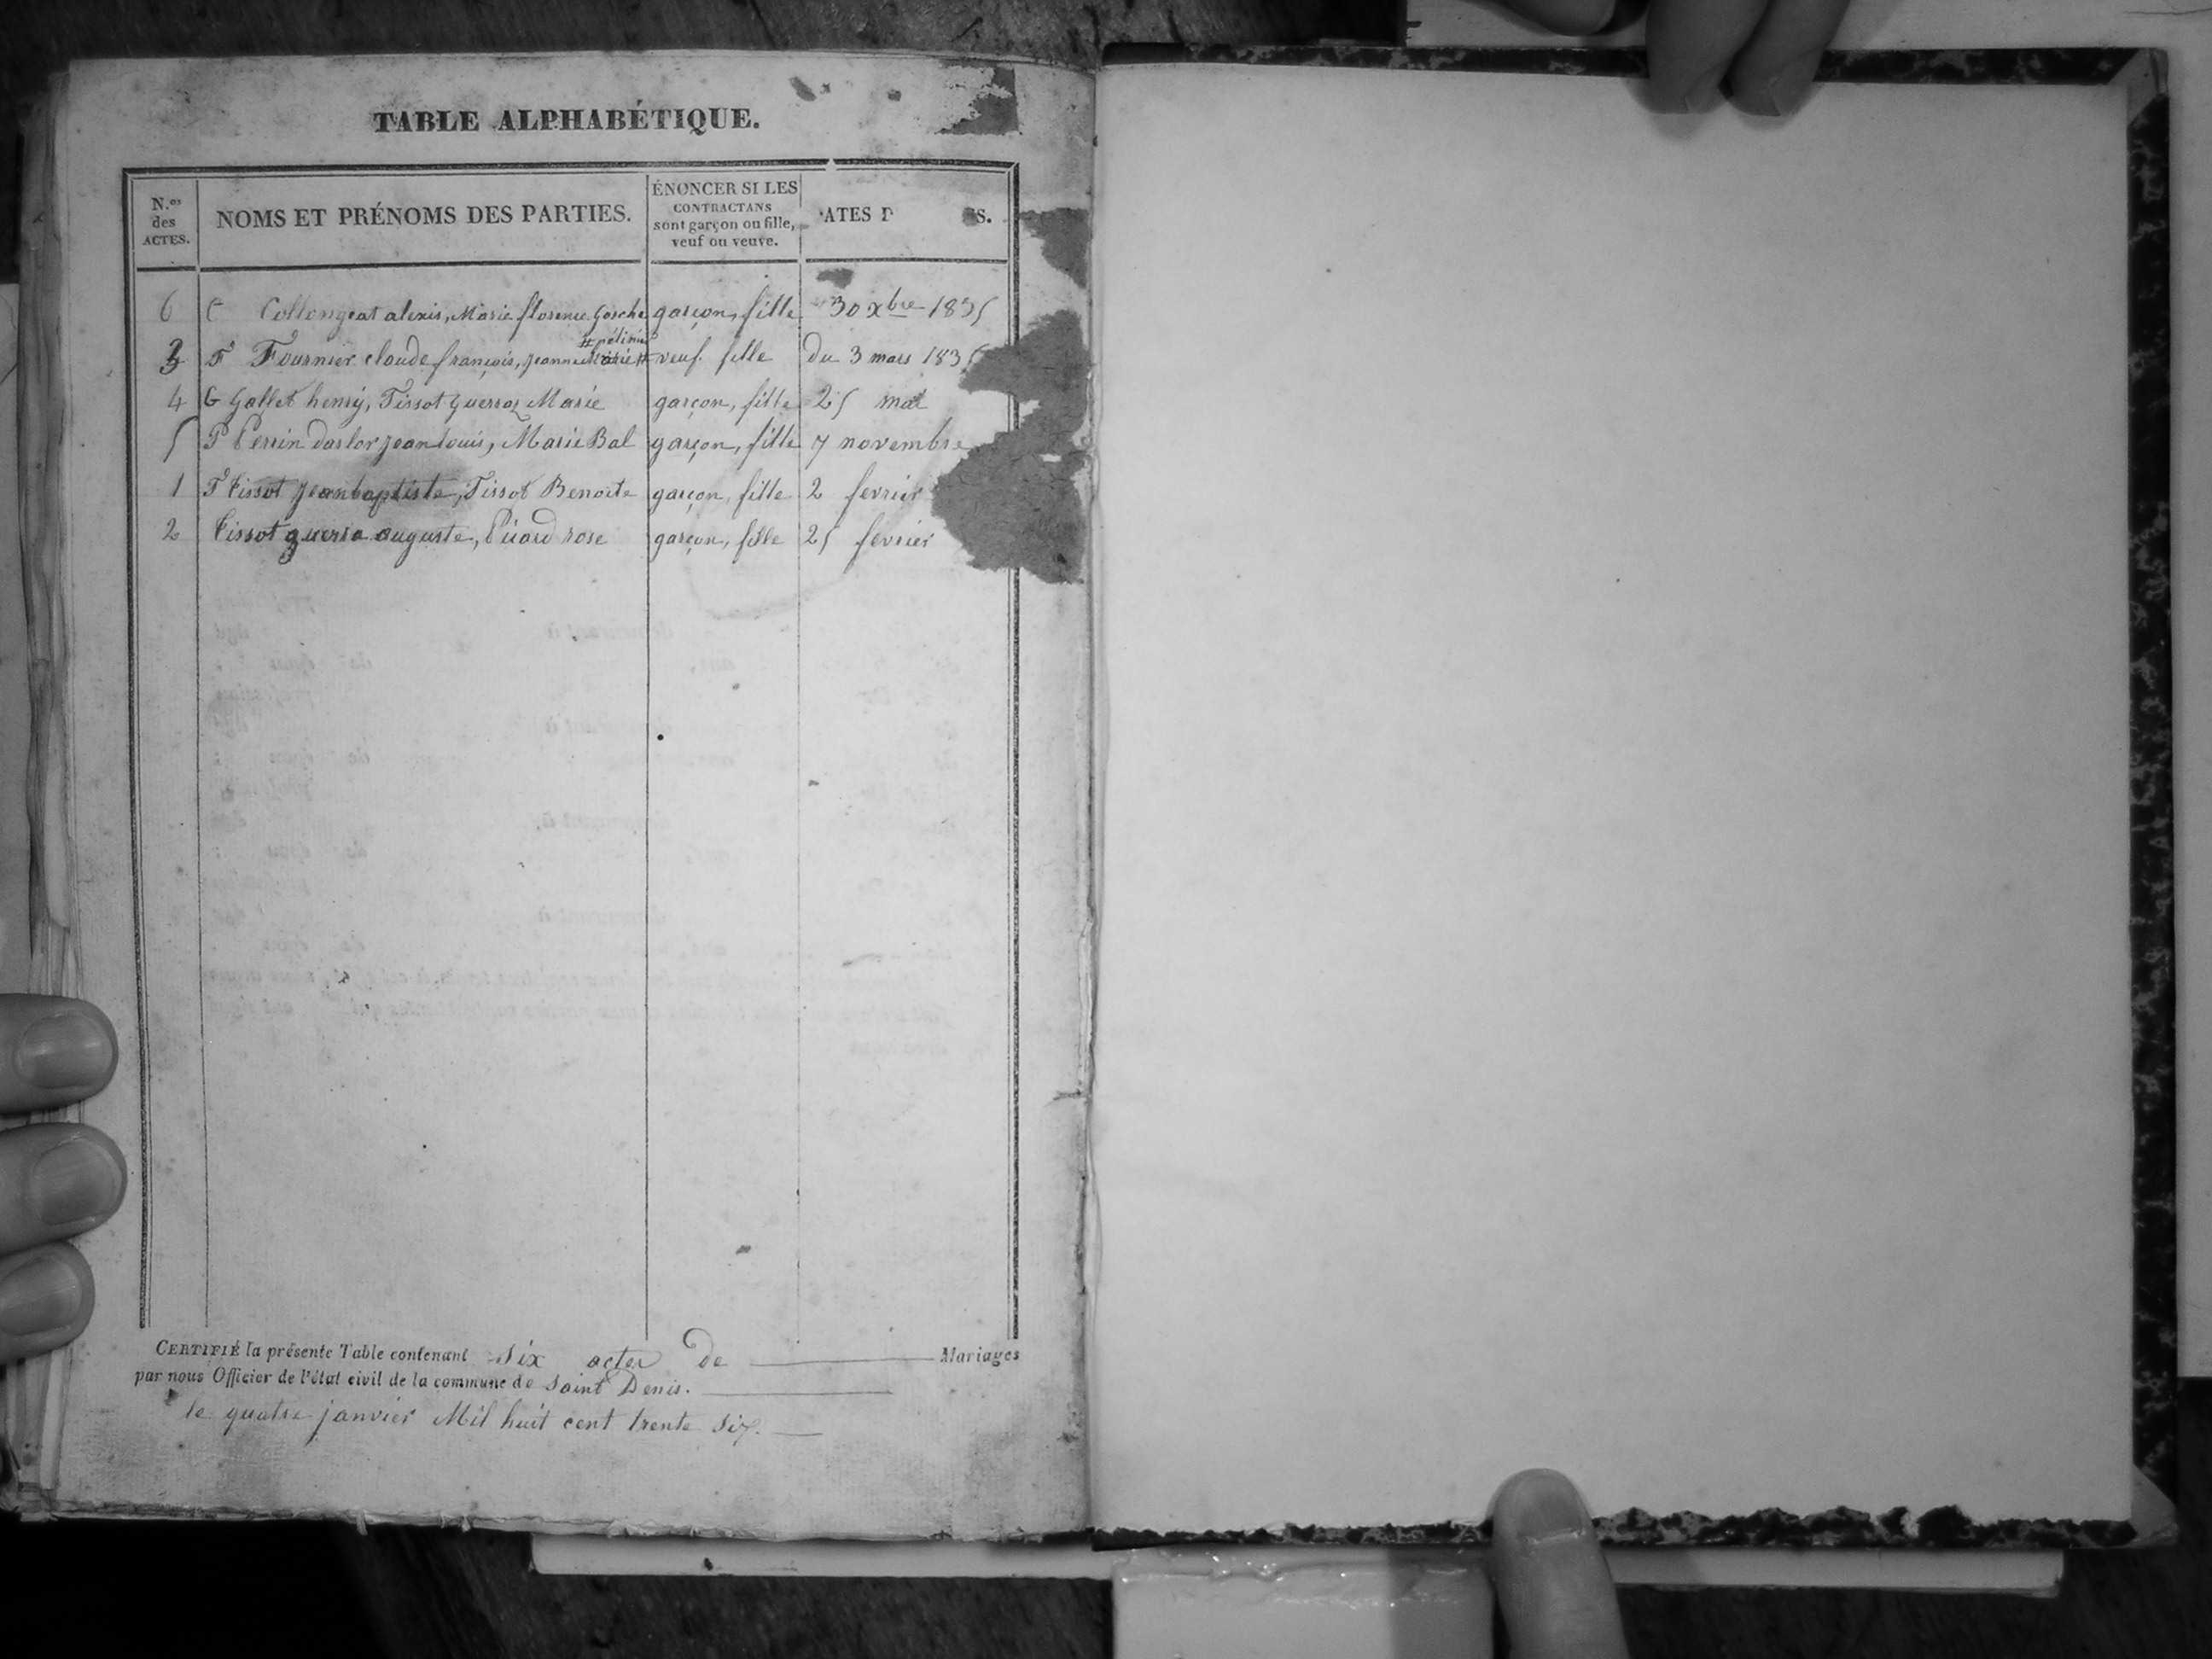 TABLE ALPHABÉTIQUE.
N.os des ACTES.
NOMS ET PRÉNOMS DES PARTIES.
ÉNONCER SI LES CONTRACTANS sont garçon ou fille, veuf ou veuve.
ATES D S.
6 C Collongeat alexis, Marie florence Gorche garçon, fille 30 xbre 1835
# pélinie
3 F Fournier claude françois, jeanne Marie # veuf fille Du 3 mars 1835
4 G Gallet henry, Tissot guerraz Marie garçon, fille 25 mai
5 P Perrin darlor jean louis, Marie Bal garçon, fille 7 novembre
1 T tissot jean baptiste, Tissot Benoite garçon, fille 2 fevrier
2 tissot guerra auguste, Picard rose garçon, fille 25 fevrier
CERTIFIÉ la présente Table contenant Six actes De Mariages
par nous Officier de l'état civil de la commune de Saint Denis.
le quatre janvier Mil huit cent trente Six.